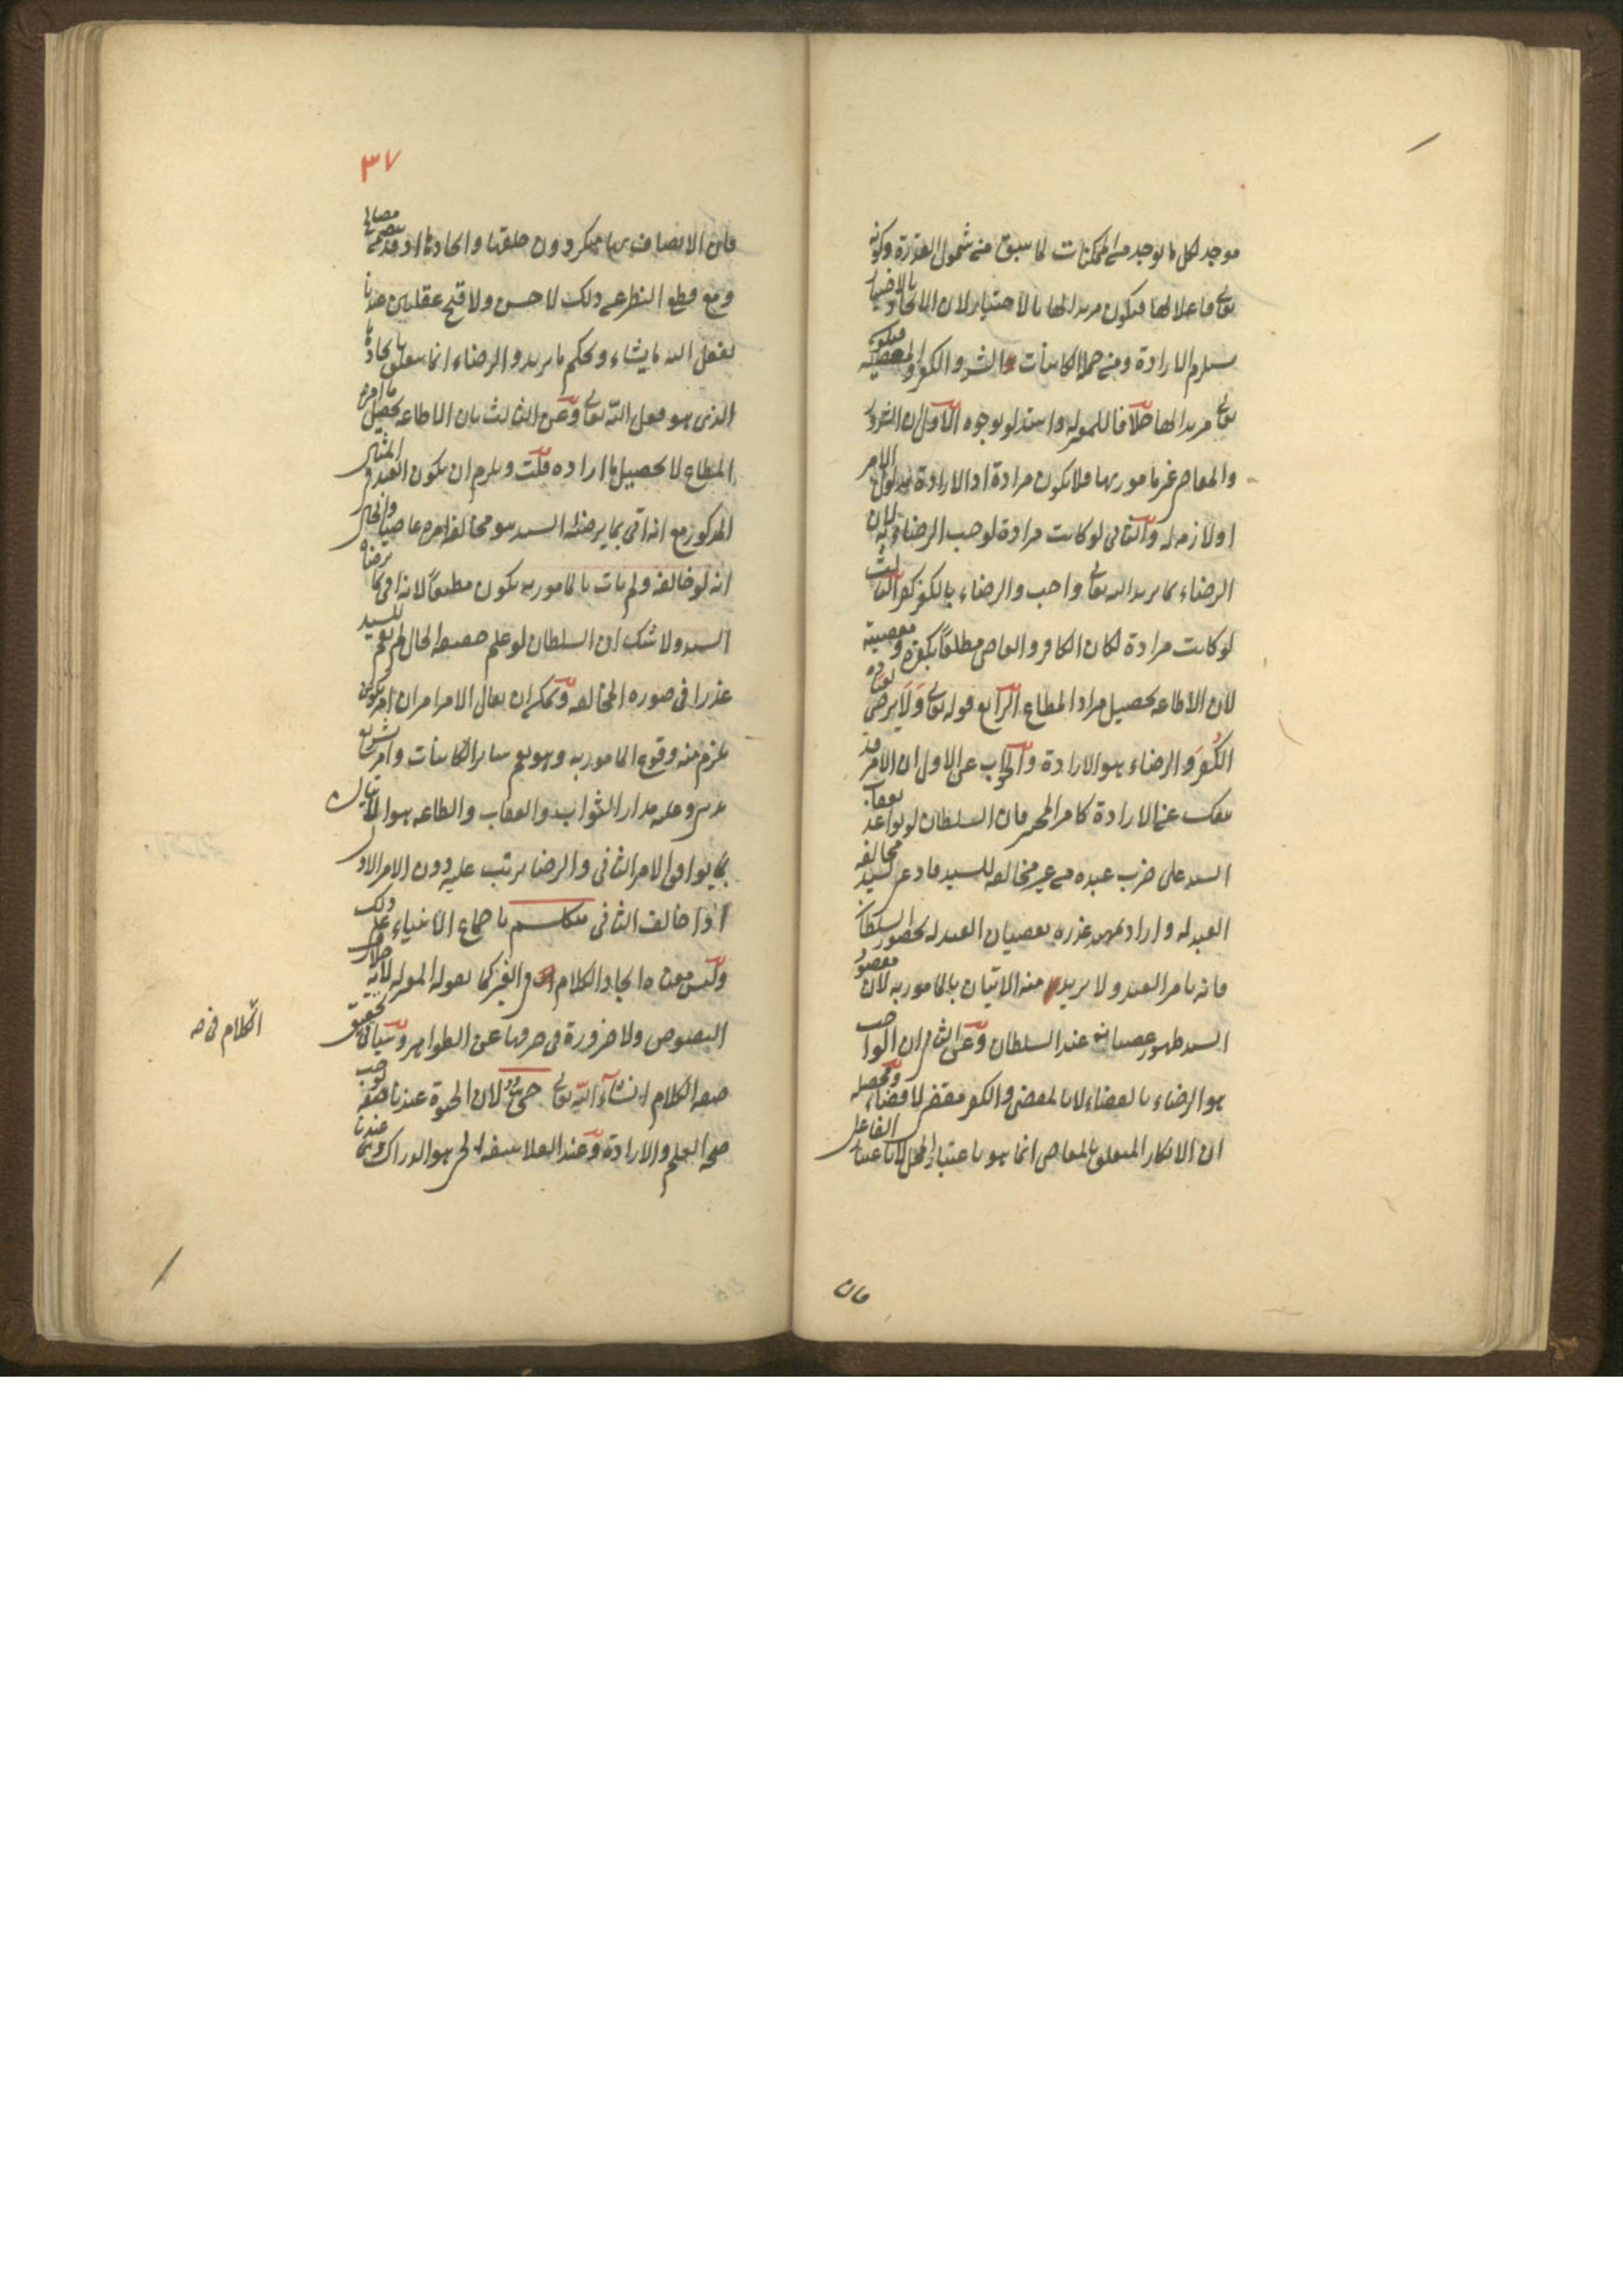 موجد لكل ما يوجد من الممكنات لما سبق من شمول القدرة وكونه
تعالى فاعلا لها فيكون مريدا لها بالاختيار لان الايجاد بالاختيار
يستلزم الارادة ومن جملة الكائنات الشر والكفر والمعصية فيكون
تعالى مريدا لها خلافا للمعتزلة واستدلوا بوجوه الاول ان الشرور
والمعاصي غير مامور بها فلا يكون مرادة اذ الارادة مدلول الامر
او لازمه له والثاني لو كانت مرادة لوجب الرضاء به لان
الرضاء بما يريد الله تعالى واجب والرضاء بالكفر كفر الثالث
لو كانت مرادة لكان الكافر والعاصي مطيعا بكفره ومعصيته
لان الاطاعة تحصيل مراد المطاع الرابع قوله تعالى ولا يرضى لعباده
الكفر والرضاء هو الارادة والجواب عن الاول ان الامر قد
ينفك عن الارادة كامر المخبر فان السلطان لو تواعد بعقاب
السيد على ضرب عبده من غير مخالفة للسيد فادعى السيد مخالفة
العبد له واراد تمهيد عذره بعصيان العبد له بحضور السلطان
فانه يامر العبد ولا يريد منه الاتيان بالمامور به لان مقصود
السيد ظهور عصيانه عند السلطان وعن الثاني ان الواجب
هو الرضاء بالقضاء لا بالمقضي والكفر مقضي لا قضاء ومحصله
ان الانكار المتعلق بالمعاصي انما هو باعتبار المحل لا باعتبار الفاعل
فان
٣٧
فان الاتصاف بها منكر دون خلقها وايجادها اذ قد يتضمن مصالح
ومع قطع النظر عن ذلك لا حسن ولا قبح عقليين عندنا
يفعل الله ما يشاء ويحكم ما يريد والرضاء انما يتعلق بايجادها
الذي هو فعل الله تعالى وعن الثالث بان الاطاعة تحصيل ما امر به
المطاع لا تحصيل ما اراده قلت ويلزم ان يكون العبد في المثال
المذكور مع انه اتى بما يرضاه السيد هو مخالفة امره عاصيا والحال
انه لو خالفه ولم يات بالمامور به يكون مطيعا لانه اتى بما يرضاه
السيد ولا شك ان السلطان لو علم حقيقة الحال لم يقم للسيد
عذرا في صورة المخالفة ويمكن ان يقال الامر امران امر تكوين
يلزم منه وقوع المامور به وهو يعم سائر الكائنات وامر تشريع
وعليه مدار الثواب والعقاب والطاعة هو الاتيان
بما يوافق الامر الثاني والرضا يترتب عليه دون الامر الاول
اذا خالف الثاني متكلم باجماع الانبياء على ذلك
وليس معناه ايجاد الكلام في الغير كما يقوله المعتزلة لانه خلاف
النصوص ولا ضرورة في صرفها عن الظواهر وسياتي تحقيق
صفة الكلام ان شاء الله تعالى حي لان الحيوة عندنا صفة توجب
صحة العلم والارادة وعند الفلاسفة الحي هو الدراك عندنا
الكلام في صه